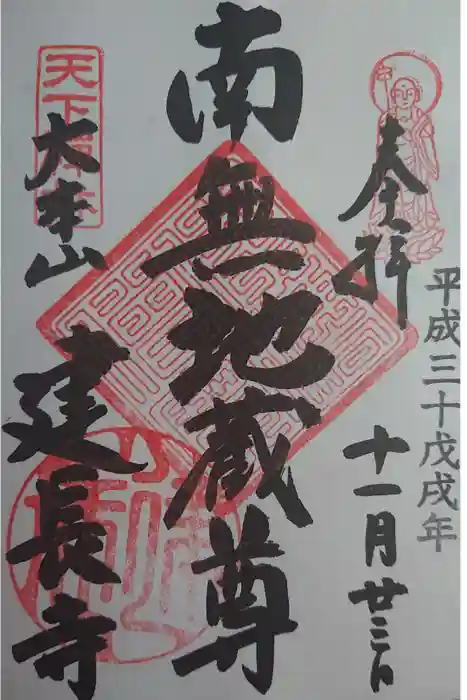 奉拝
平成三十戊戌年
十一月廿三日
南無地蔵尊
天下禅林
大本山
建長寺